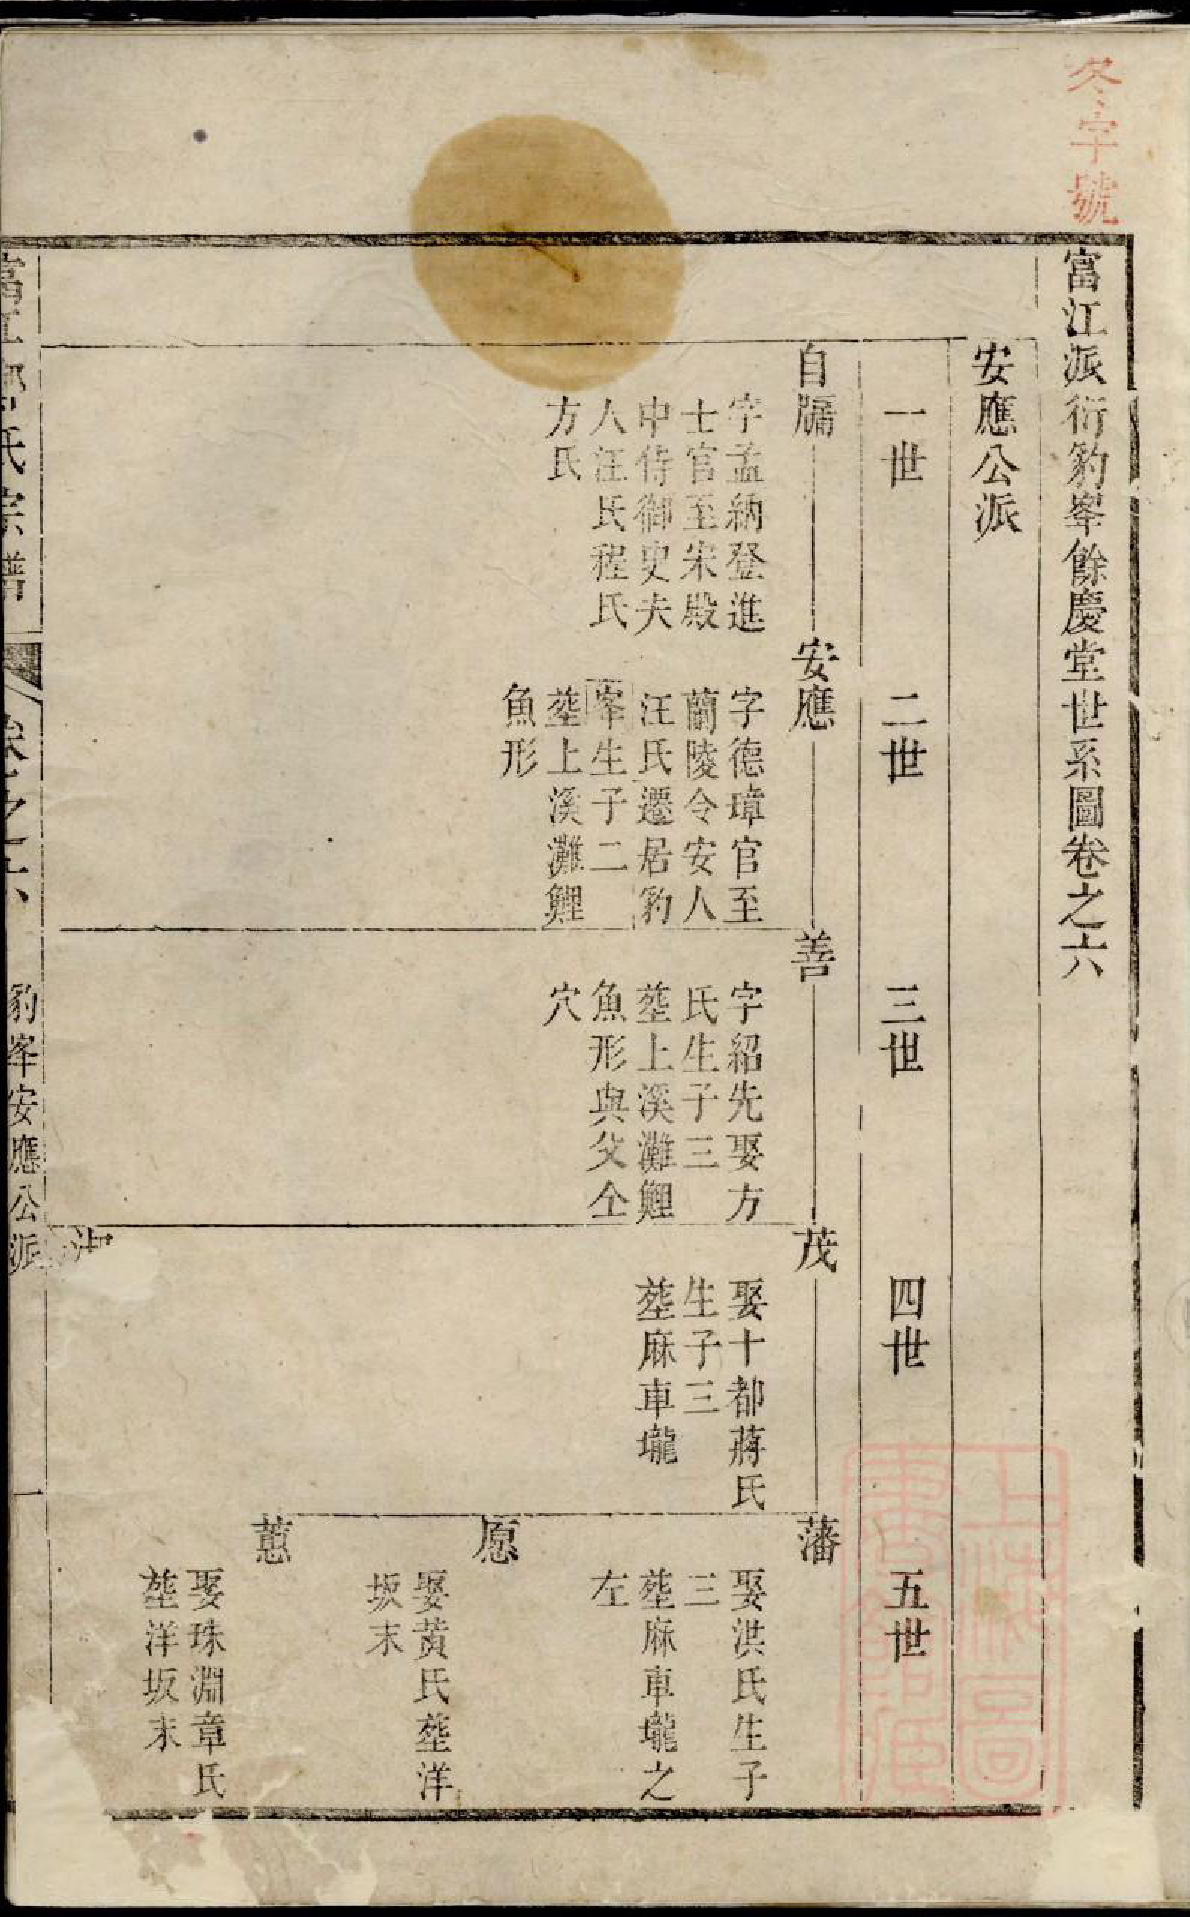 冬字號
富江派衍豹峯餘慶堂世系圖卷之六
安應公派
一世
二世
三世
四世
五世
自牖
字孟納登進
士官至宋殿
中侍御史夫
人汪氏程氏
方氏
安應
字德璋官至
蘭陵令安人
汪氏遷居豹
峯生子二
塟上溪灘鯉
魚形
善
字紹先娶方
氏生子三
塟上溪灘鯉
魚形與父仝
穴
茂
娶十都蔣氏
生子三
塟麻車壠
藩
娶洪氏生子
三
塟麻車壠之
左
愿
娶黃氏塟洋
坂末
蒠
娶珠淵章氏
塟洋坂末
氏宗譜
卷之六
豹峯安應公派
一
上海圖
書館藏